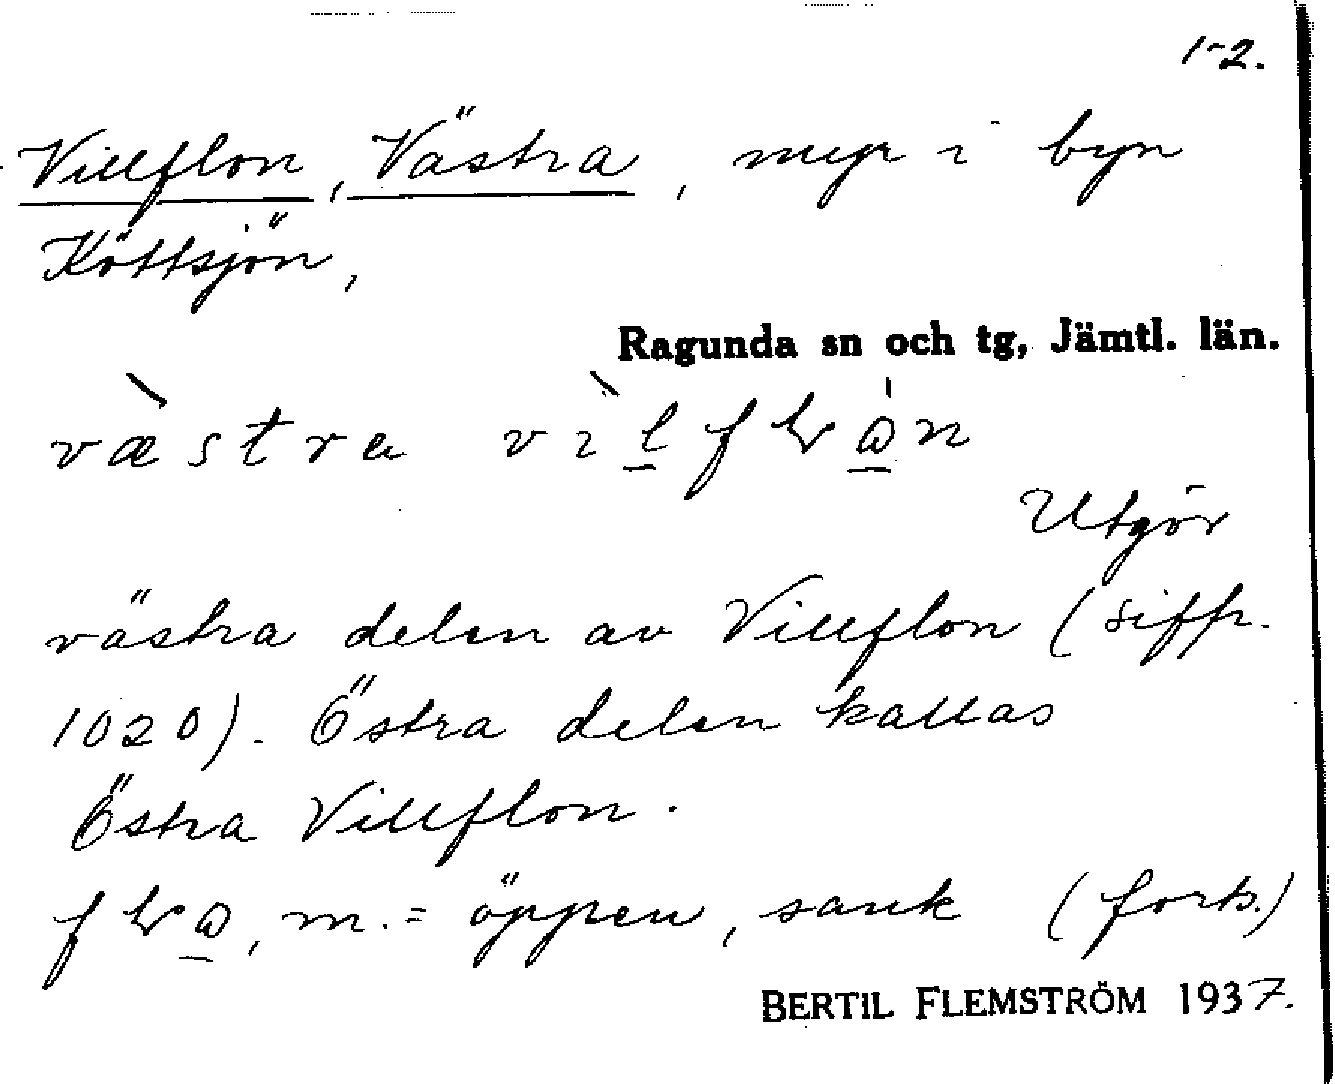 1-2.
Villflon, Västra, myr i byn
Köttsjön,
Ragunda sn och tg, Jämtl. län.
væ̀stra
Utgör
västra delen av Villflon (siffr.
1020). Östra delen kallas
Östra Villflon.
m. = öppen, sank (forts.)
BERTIL FLEMSTRÖM 1937.